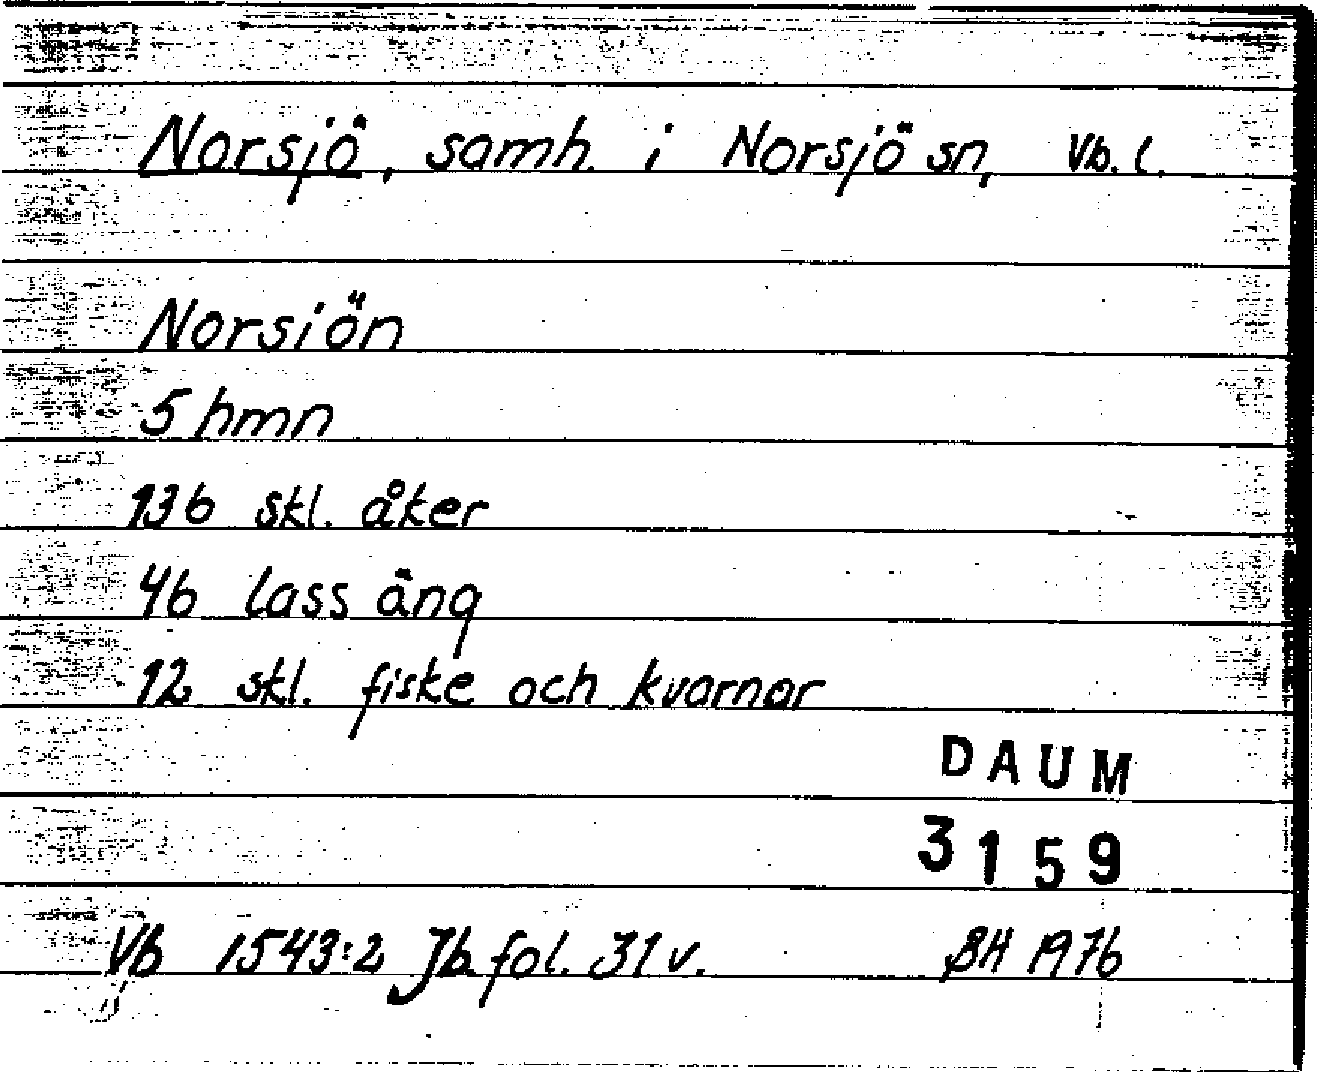 Norsjö, samh. i Norsjö sn, Vb. l.
Norsiön
5 hmn
136 skl. åker
46 lass äng
12 skl. fiske och kvarnar
DAUM
3159
Vb 1543:2 Jb fol. 31 v. BH 1976